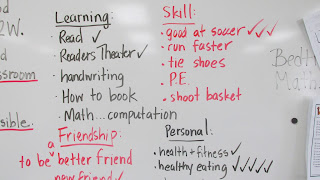 Learning:
• Read ✓
• Readers Theater ✓
• handwriting
• How to book
• Math...computation
Skill:
• good at soccer ✓✓✓
• run faster
• tie shoes
• P.E.
• shoot basket
Friendship:
to be a better friend
new friend ✓
Personal:
• health + fitness ✓
• healthy eating ✓✓✓✓
2W.
ssroom
sible.
Math